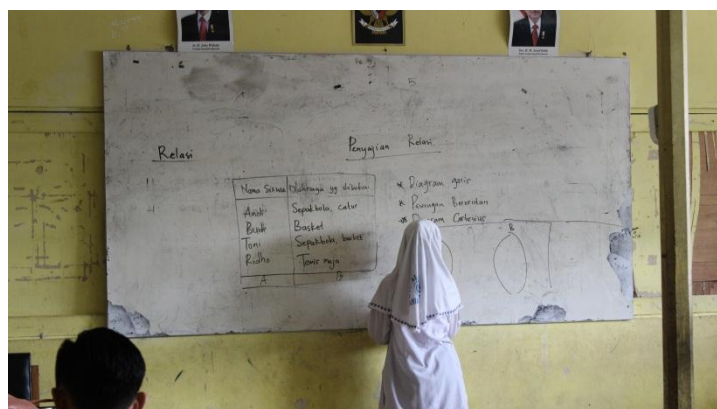 5
Relasi
Penyajian Relasi
Nama Siswa Olahraga yg disukai
Andi Sepakbola, catur
Budi Basket
Toni Sepakbola, basket
Ridho Tenis meja
A B
* Diagram garis
* Pasangan Berurutan
* Diagram Cartesius
B